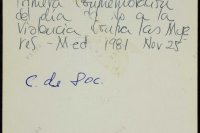 Primera Conmemoración
del día del no a la
Violencia Contra las Muje
res. - Med. 1981 Nov 25
C. de Soc.